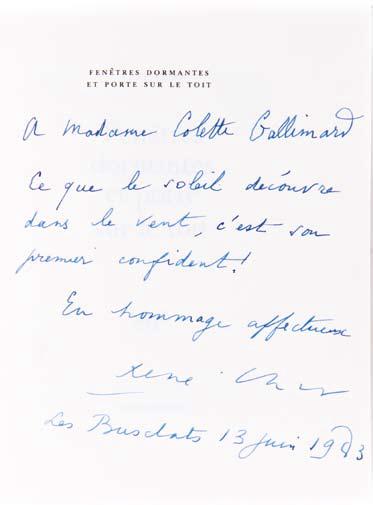 FENÊTRES DORMANTES
ET PORTE SUR LE TOIT
A Madame Colette Gallimard
Ce que le soleil découvre
dans le vent, c'est son
premier confident!
En hommage affectueux
René Char
Les Busclats 13 juin 1983